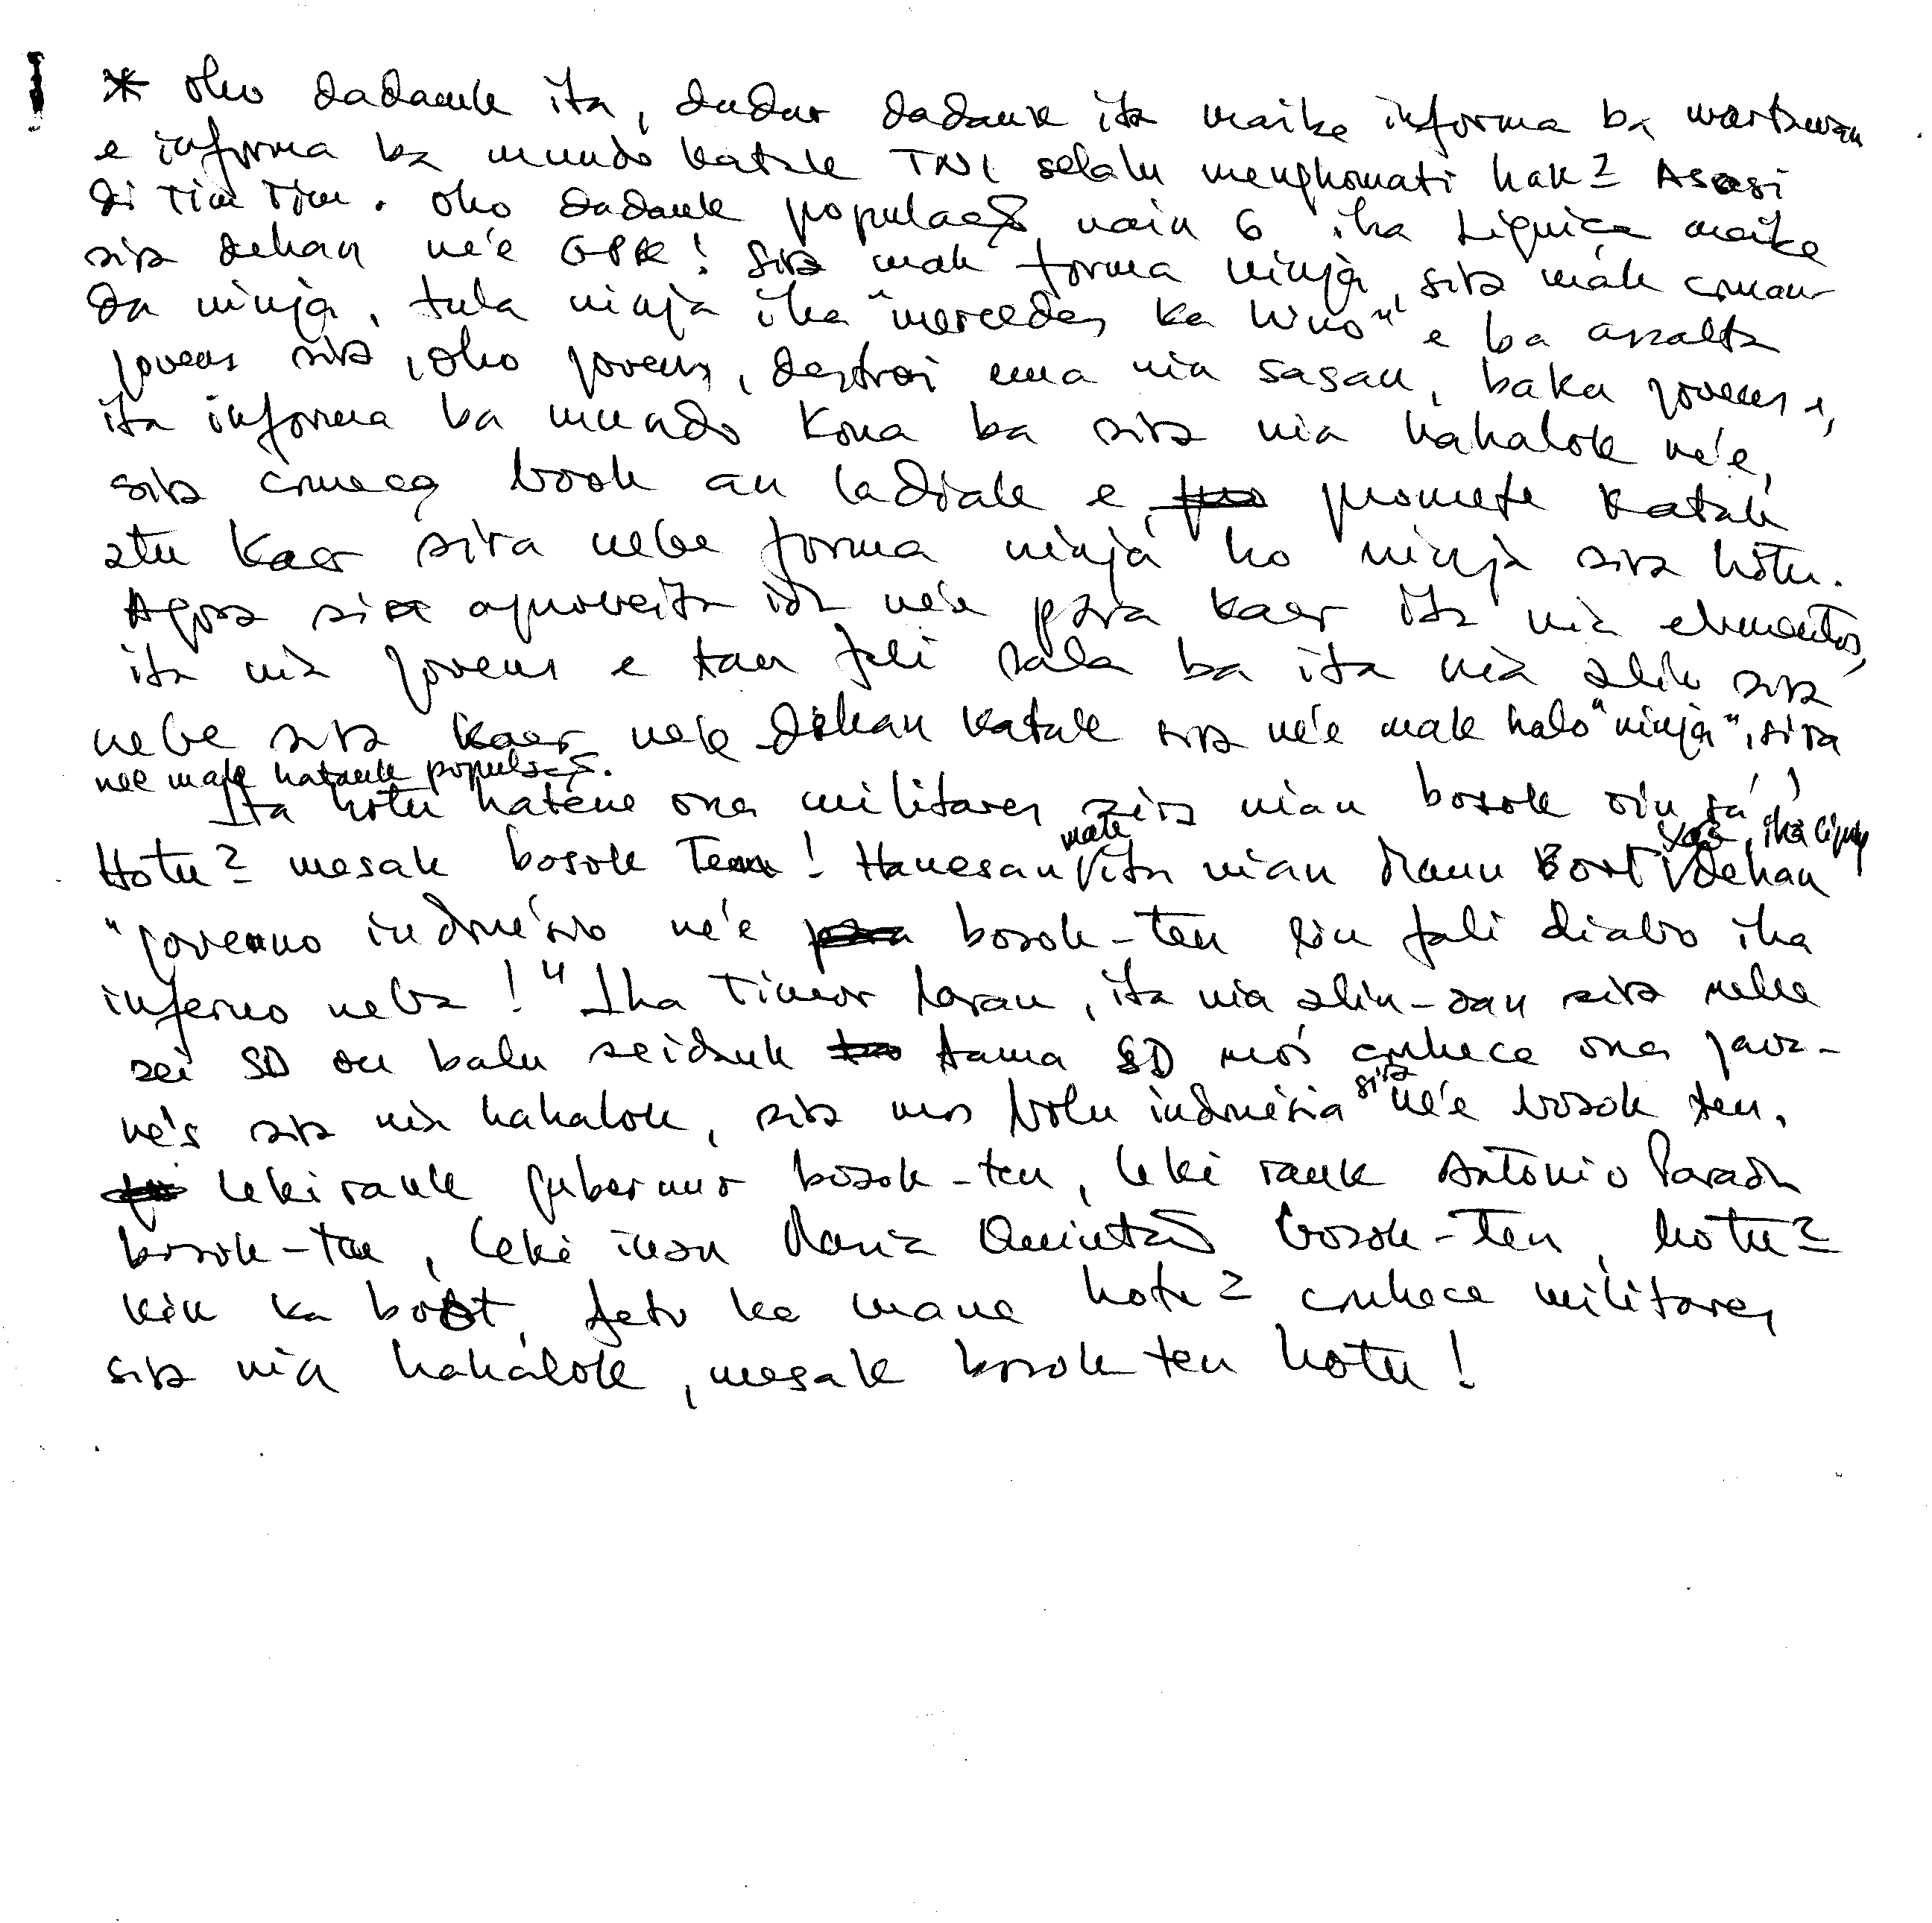 * oho dadauk ita, dudur dadauk ita maibe informa ba wartawan
e informa ba mundo katak TNI selalu menghomati hak2 Asasi
di Tim Tim. Oho dadauk populaçã nain 6 iha Liquiça maibe
sira dehan ne'e GPK! Sira mak forma ninja, sira mak coman-
da ninja, tula ninja iha "mercedes ka hino" e ba assalta
jovens sira, oho jovens, destroi ema nia sasan, baku jovens e,
ita informa ba mundo kona ba sira nia hahalok ne'e,
sira começa book an ladiak e promete katak
atu kaer sira nebe forma ninja ho ninja sira hotu.
Agora sira aproveita ida ne'e para kaer ita nia elementos,
ita nia jovens e tau fali sala ba ita nia alin sira
nebe sira kaer ne'e dehan katak sira ne'e mak halo "ninja", sira
nee mak hatauk populaçã.
Ita hotu hatene ona militares sira nian bosok oin sá!
Hotu2 mesak bosok Ten! Hanesan mate ita nian Maun Bort dehan
"governo indonésio ne'e bosok-ten liu fali diabo iha
inferno neba!" Iha Timor laran, ita nia alin-oan sira nebe
sei SD ou balu seidauk tama SD mos conhece ona java-
nés sira nia hahalok, sira mos bolu indonésia sira ne'e bosok ten.
Leki rauk gubernur bosok-ten, leki rauk António Parada
bosok-ten, leki inan Maria Quintã bosok-ten, hotu2
kik ka boot, feto ka mane hotu2 conhece militares
sira nia hahalok, mesak bosok ten hotu!